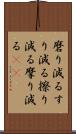 磨り減るす
り減る擦り
減る摩り減
る